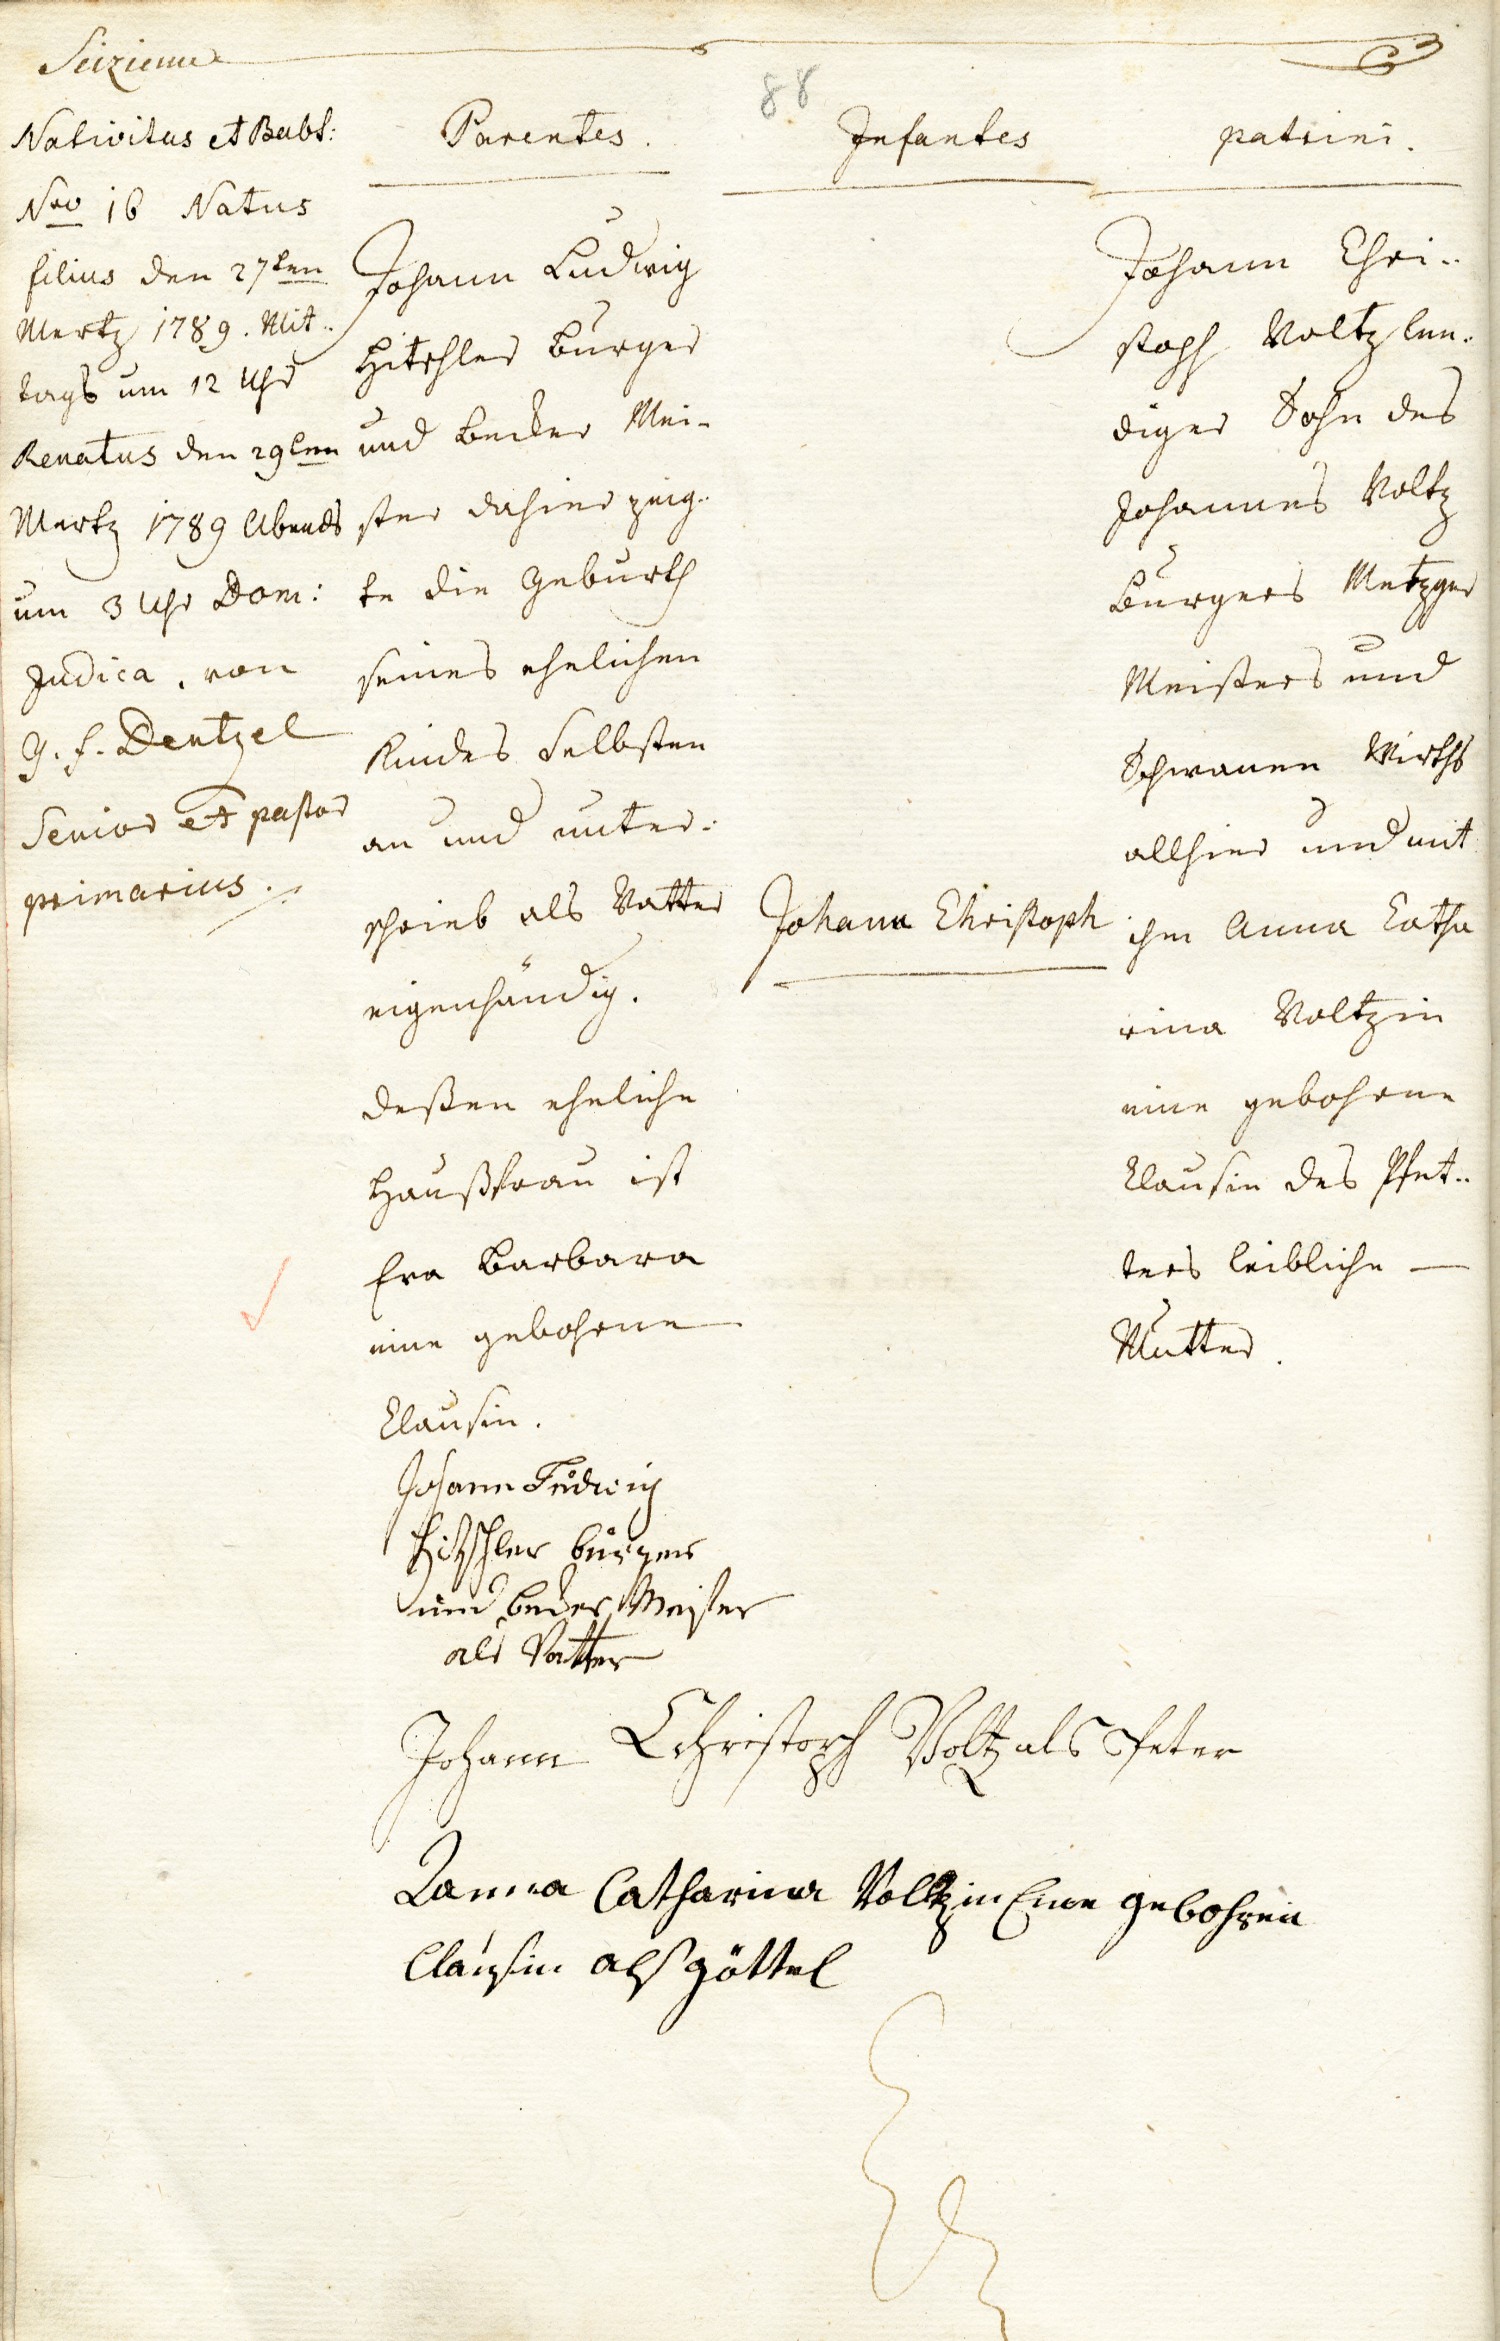 Seizieme
88
Nativitas et Babt:
Nro 16 Natus
filius den 27ten
Mertz 1789. Mit..
tags um 12 Uhr
Renatus den 29ten
Mertz 1789 Abends
um 3 Uhr Dom:
Judica, von
G. f. Dentzel
Senior et pastor
primarius.
Parentes.
Johann Ludwig
Hitschler Burger
und Becker Mei-
ster dahier zeig..
te die Geburth
seines ehelichen
Kindes Selbsten
an und unter:
schrieb als Vatter
eigenhändig.
deßen eheliche
Haußfrau ist
Eva Barbara
eine gebohrne
Clausin.
Johann Ludwig
Hitschler burger
und becker Meister
als Vatter
Infantes
Johann Christoph
patrini.
Johann Chri..
stoph Voltz lee..
diger Sohn des
Johannes Voltz
Burgers Metzger
Meisters und
Schwanen Wirths
allhier und mit
ihm Anna Catha
rina Voltzin
eine gebohrne
Clausin des Pfet..
ters leibliche
Mutter.
Johann Cchristoph Voltz als Peter
Aanna Catharina Voltzin Eine gebohrein
Clausin alß göttel